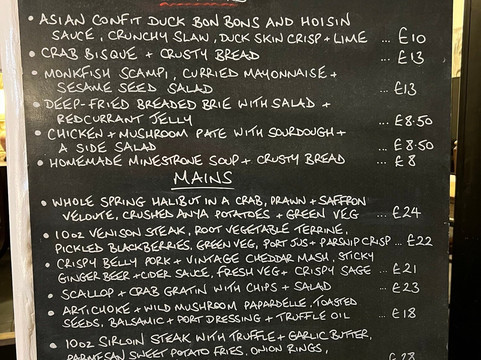 • ASIAN CONFIT DUCK BON BONS AND HOISIN
SAUCE, CRUNCHY SLAW, DUCK SKIN CRISP + LIME ... £10
• CRAB BISQUE + CRUSTY BREAD ... £13
• MONKFISH SCAMPI, CURRIED MAYONNAISE +
SESAME SEED SALAD ... £13
• DEEP-FRIED BREADED BRIE WITH SALAD +
REDCURRANT JELLY ... £8.50
• CHICKEN + MUSHROOM PATE WITH SOURDOUGH +
A SIDE SALAD ... £8.50
• HOMEMADE MINESTRONE SOUP + CRUSTY BREAD ... £8
MAINS
• WHOLE SPRING HALIBUT IN A CRAB, PRAWN + SAFFRON
VELOUTE, CRUSHED ANYA POTATOES + GREEN VEG ... £24
• 10oz VENISON STEAK, ROOT VEGETABLE TERRINE,
PICKLED BLACKBERRIES, GREEN VEG, PORT JUS + PARSNIP CRISP ... £22
• CRISPY BELLY PORK + VINTAGE CHEDDAR MASH, STICKY
GINGER BEER + CIDER SAUCE, FRESH VEG + CRISPY SAGE ... £21
• SCALLOP + CRAB GRATIN WITH CHIPS + SALAD ... £23
• ARTICHOKE + WILD MUSHROOM PAPARDELLE, TOASTED
SEEDS, BALSAMIC + PORT DRESSING + TRUFFLE OIL ... £18
• 10oz SIRLOIN STEAK WITH TRUFFLE + GARLIC BUTTER,
PARMESAN SWEET POTATO FRIES, ONION RINGS,